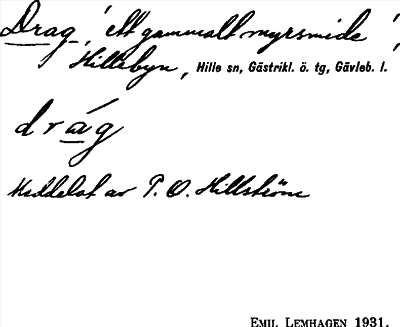 Drag, 'ett gammalt myrsmide',
Hillebyn, Hille sn, Gästrikl. ö. tg, Gävleb. l.
dràg
Meddelat av P. O. Hillström
EMIL LEMHAGEN 1931.